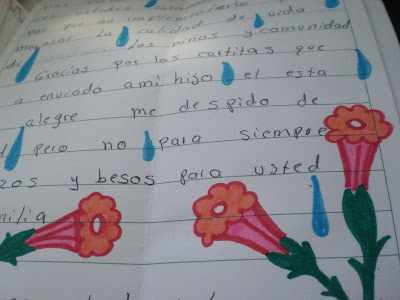 con ustedes
por que an implementado
mejorar la calidad de vida
de los niños y comunidad
Gracias por las cartitas que
a enviado ami hijo el esta
alegre me despido de
pero no para siempre
y besos para usted